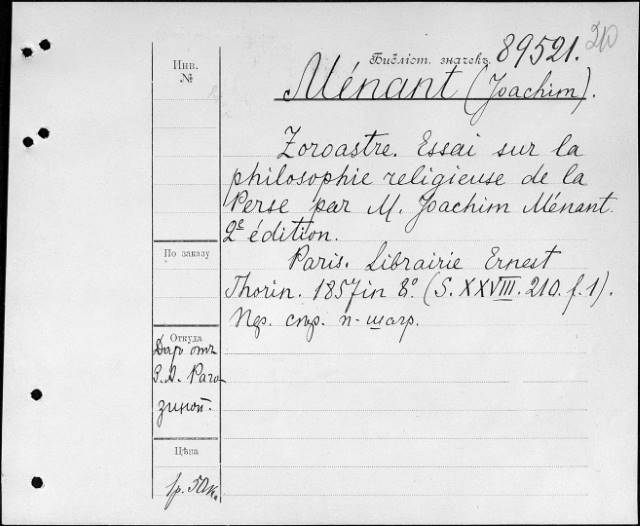 210
Библіот. значекъ 89521.
Инв.
№
Ménant (Joachim).
Zoroastre. Essai sur la
philosophie religieuse de la
Perse par M. Joachim Ménant.
2e édition.
По заказу
Paris. Librairie Ernest
Thorin. 1857 in 8º. (S. XXVIII. 210. f. 1).
пер. п-шагр.
Откуда
Даръ отъ
З. А. Раго-
зиной.
Цѣна
1р. 50к.